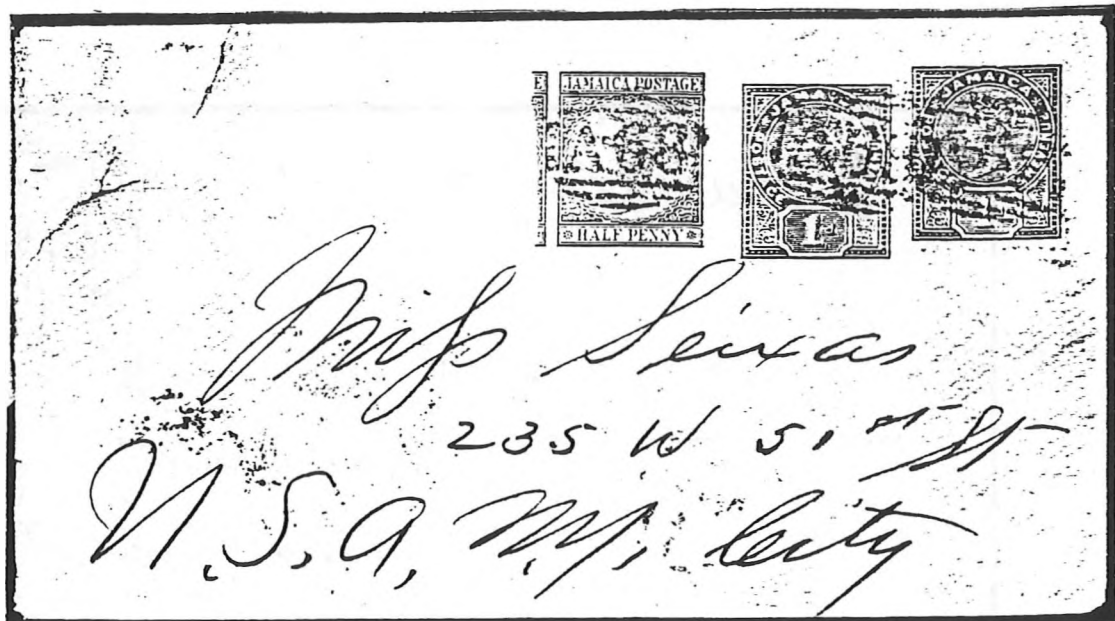 JAMAICA POSTAGE
HALF PENNY
JAMAICA
1D
JAMAICA
Miss Seixas
235 W 51st St
U.S.A. N.Y. City